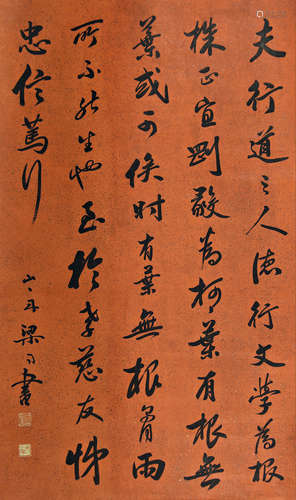 夫行道之人德行文学為根
株正直剛毅為柯葉有根無
葉或可俟时有葉無根膏雨
所不能生也至於孝慈友悌
忠信篤行
山舟梁同書